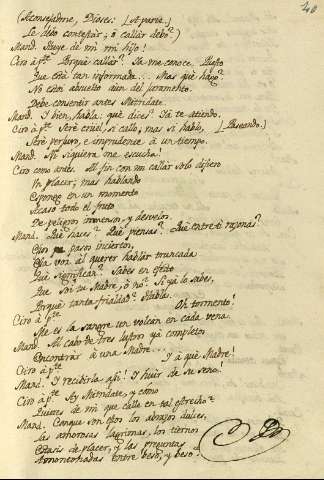 40
(Aconsejadme, Dioses: [Aparte.]
Le debo contestar; ò callàr debo?)
Mand. Huye de mi mi hijo!
Ciro à pte. Porquè callàr? Ya me conoce.
Que està tan informada... Mas què hago?
No estoi absuelto aùn del juramento.
Debe consentir antes Mitridate.
Mand. I bien, habla: què dices? Yà te atiendo.
Ciro à pte. Serè cruèl, si callo; mas si hablo, [Paseando.]
Serè perjuro, è imprudente à un tiempo.
Mand. Ni siquiera me escucha!
Ciro como antes. Al fin con mi callàr solo difiero
Un placer; mas hablando
Espongo en un momento
Acaso todo el fruto
De peligros inmensos, y desvelos.
Mand. Què haces? Què piensas? Què entre ti razonas?
Esos pasos inciertos,
Esa voz al querer hablar truncada
Què significan? Sabes en efeto
Que soi tu Madre, ò no? Si yà lo sabes,
Porquè tanta frialdad? Habla.
Ciro à pte. Oh tormento!
Me es la sangre un volcàn en cada vena.
Mand. Al cabo de tres lustros yà completos
Encontràr à una Madre...
Ciro à pte. I à què Madre!
Mand. I recibirla asi! I huir de su seno!
Ciro à pte. Ay Mitridate, y còmo
Quieres de mi que calle en tal estrecho?
Mand. Conque son estos los abrazos dulces,
las amorosas lagrimas, los tiernos
Estasis de placer, y las preguntas
Amontonadas entre beso, y beso?